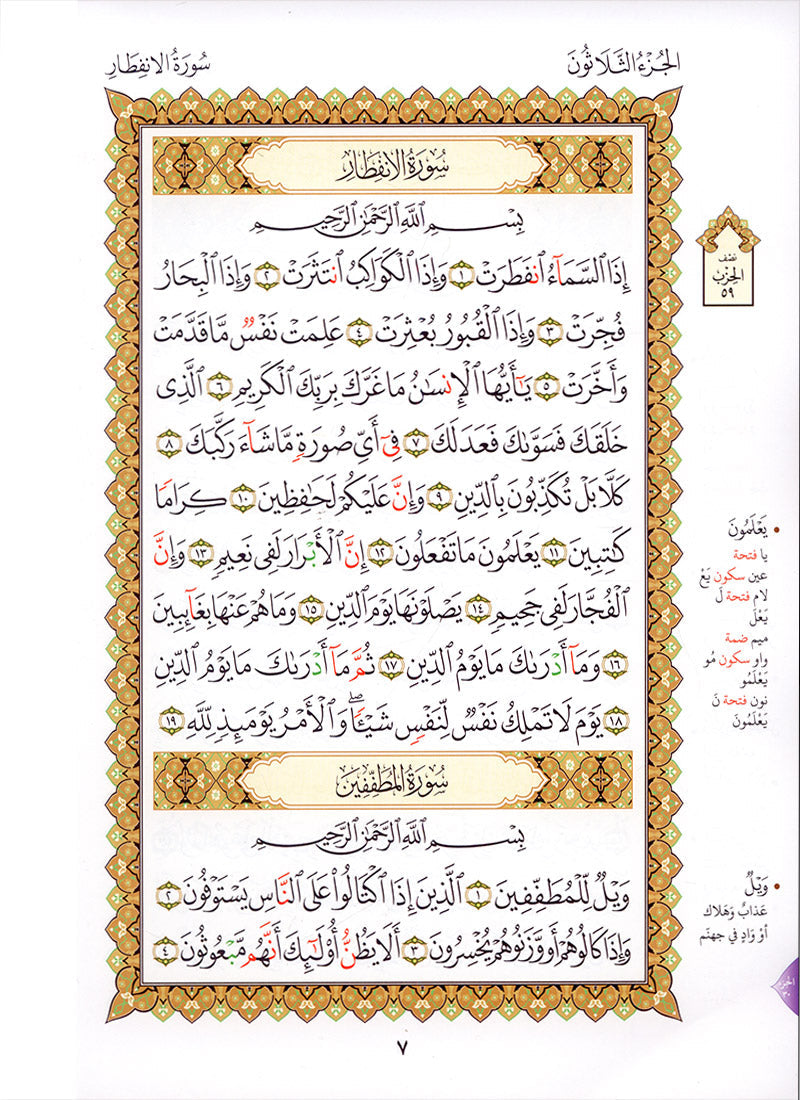 الجُزْءُ الثَّلَاثُونَ
سُورَةُ الانفِطَارِ
سُورَةُ الِانفِطَارِ
بِسْمِ ٱللَّهِ ٱلرَّحْمَٰنِ ٱلرَّحِيمِ
إِذَا ٱلسَّمَآءُ ٱنفَطَرَتْ ١ وَإِذَا ٱلْكَوَاكِبُ ٱنتَثَرَتْ ٢ وَإِذَا ٱلْبِحَارُ
فُجِّرَتْ ٣ وَإِذَا ٱلْقُبُورُ بُعْثِرَتْ ٤ عَلِمَتْ نَفْسٌ مَّا قَدَّمَتْ
وَأَخَّرَتْ ٥ يَٰٓأَيُّهَا ٱلْإِنسَٰنُ مَا غَرَّكَ بِرَبِّكَ ٱلْكَرِيمِ ٦ ٱلَّذِى
خَلَقَكَ فَسَوَّىٰكَ فَعَدَلَكَ ٧ فِىٓ أَىِّ صُورَةٍ مَّا شَآءَ رَكَّبَكَ ٨
كَلَّا بَلْ تُكَذِّبُونَ بِٱلدِّينِ ٩ وَإِنَّ عَلَيْكُمْ لَحَٰفِظِينَ ١٠ كِرَامًا
كَٰتِبِينَ ١١ يَعْلَمُونَ مَا تَفْعَلُونَ ١٢ إِنَّ ٱلْأَبْرَارَ لَفِى نَعِيمٍ ١٣ وَإِنَّ
ٱلْفُجَّارَ لَفِى جَحِيمٍ ١٤ يَصْلَوْنَهَا يَوْمَ ٱلدِّينِ ١٥ وَمَا هُمْ عَنْهَا بِغَآئِبِينَ
١٦ وَمَآ أَدْرَىٰكَ مَا يَوْمُ ٱلدِّينِ ١٧ ثُمَّ مَآ أَدْرَىٰكَ مَا يَوْمُ ٱلدِّينِ
١٨ يَوْمَ لَا تَمْلِكُ نَفْسٌ لِّنَفْسٍ شَيْـًٔا ۖ وَٱلْأَمْرُ يَوْمَئِذٍ لِّلَّهِ ١٩
سُورَةُ المُطَفِّفِينَ
بِسْمِ ٱللَّهِ ٱلرَّحْمَٰنِ ٱلرَّحِيمِ
وَيْلٌ لِّلْمُطَفِّفِينَ ١ ٱلَّذِينَ إِذَا ٱكْتَالُوا۟ عَلَى ٱلنَّاسِ يَسْتَوْفُونَ ٢
وَإِذَا كَالُوهُمْ أَو وَّزَنُوهُمْ يُخْسِرُونَ ٣ أَلَا يَظُنُّ أُو۟لَٰٓئِكَ أَنَّهُم مَّبْعُوثُونَ ٤
نصف
الحِزْبِ
٥٩
يَعْلَمُونَ
يا فتحة
عين سكون يَعْ
لام فتحة لَ
يَعْلَ
ميم ضمة
واو سكون مُو
يَعْلَمُو
نون فتحة نَ
يَعْلَمُونَ
وَيْلٌ
عَذابٌ وَهَلاك
أوْ وَادٍ في جهنّم
الجزء
٣٠
٧